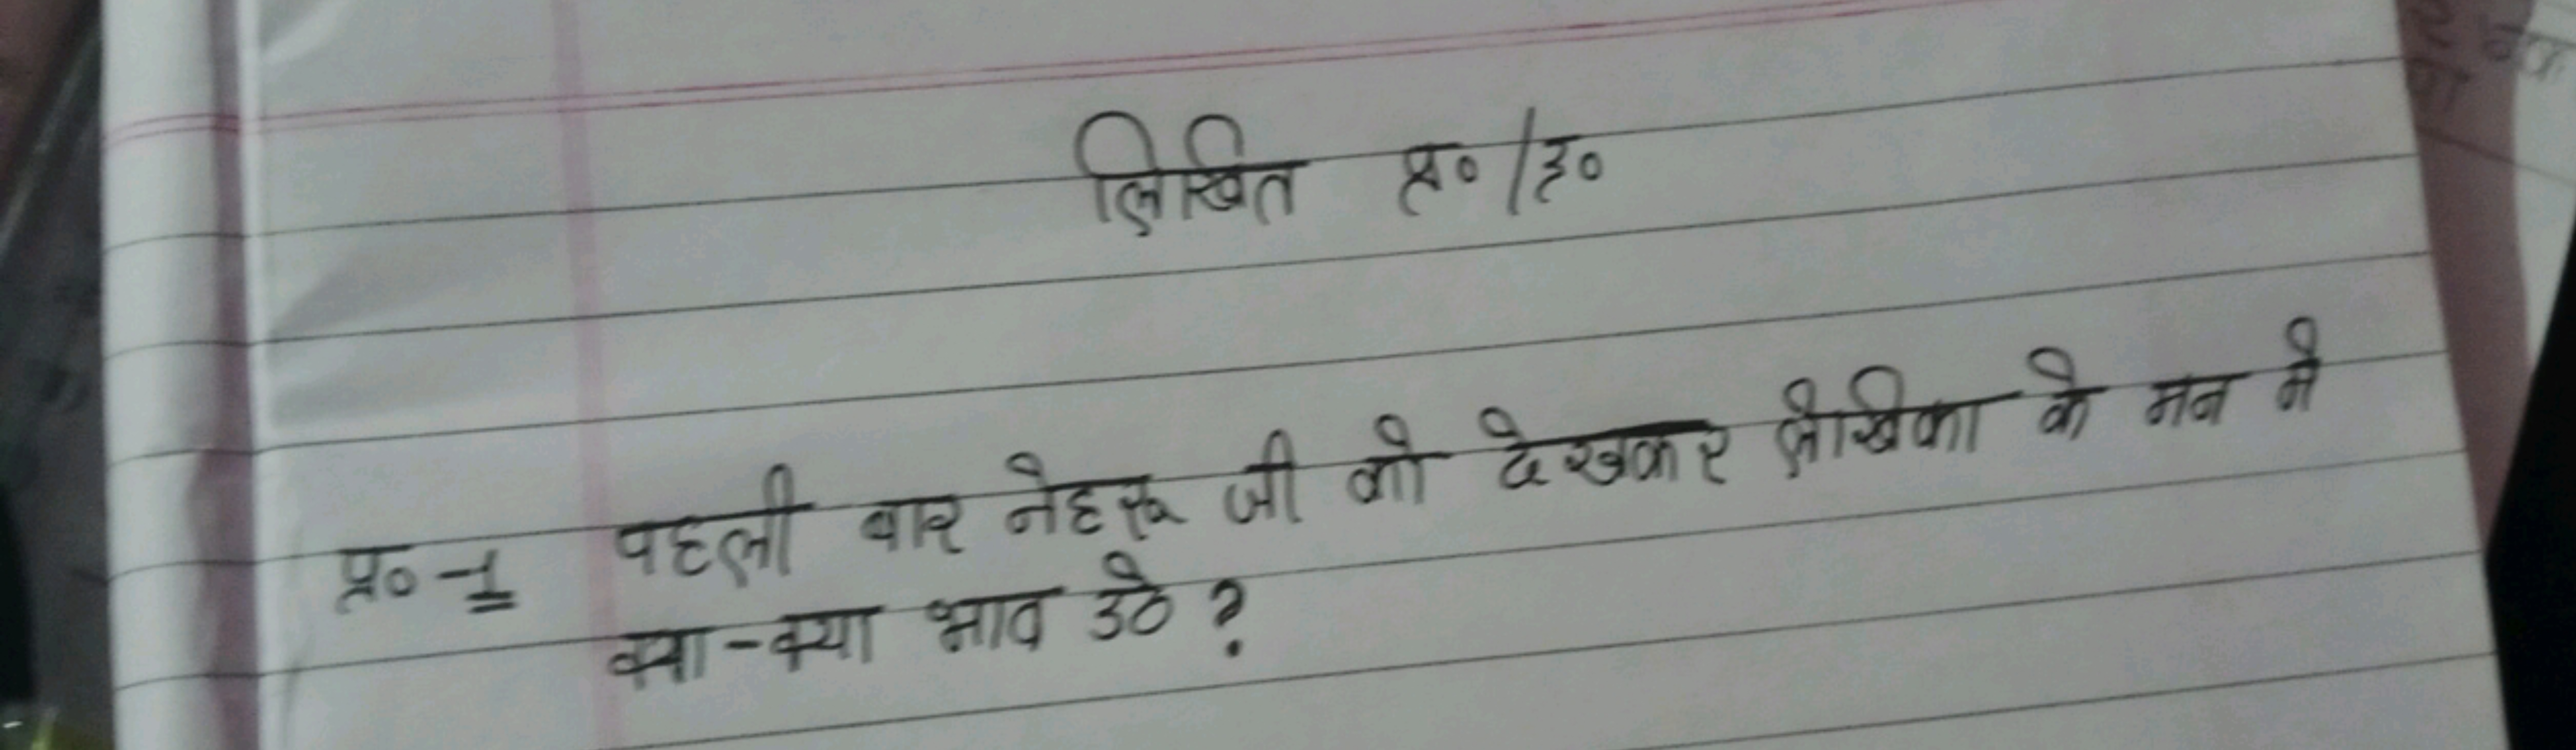 लिखित प्र० / उ०
प्र० -1 पहली बार नेहरू जी को देखकर लेखिका के मन में
क्या-क्या भाव उठे ?